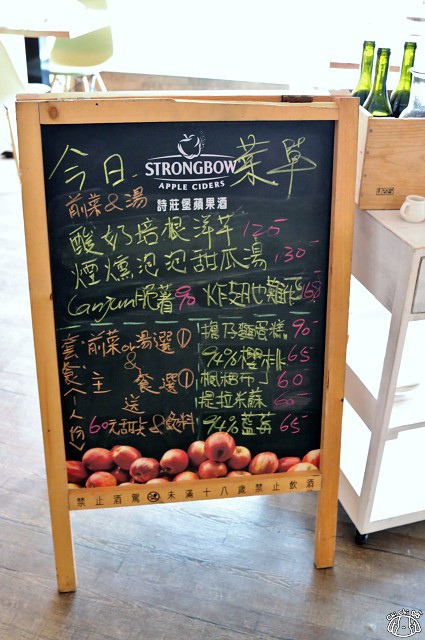 今日 菜草
STRONGBOW
APPLE CIDERS
詩莊堡蘋果酒
前菜&湯
酸奶培根洋芋 125-
煙燻泡泡甜瓜湯 130-
Canjun脆薯 90 炸翅 168
套餐(個人份)
前菜or湯選①
&
主餐選①
送
60元甜点&飲料
鷄蛋糕 90-
94%櫻桃 65
布丁 60
提拉米蘇 60-
94%藍莓 65-
禁止酒駕 未滿十八歲禁止飲酒